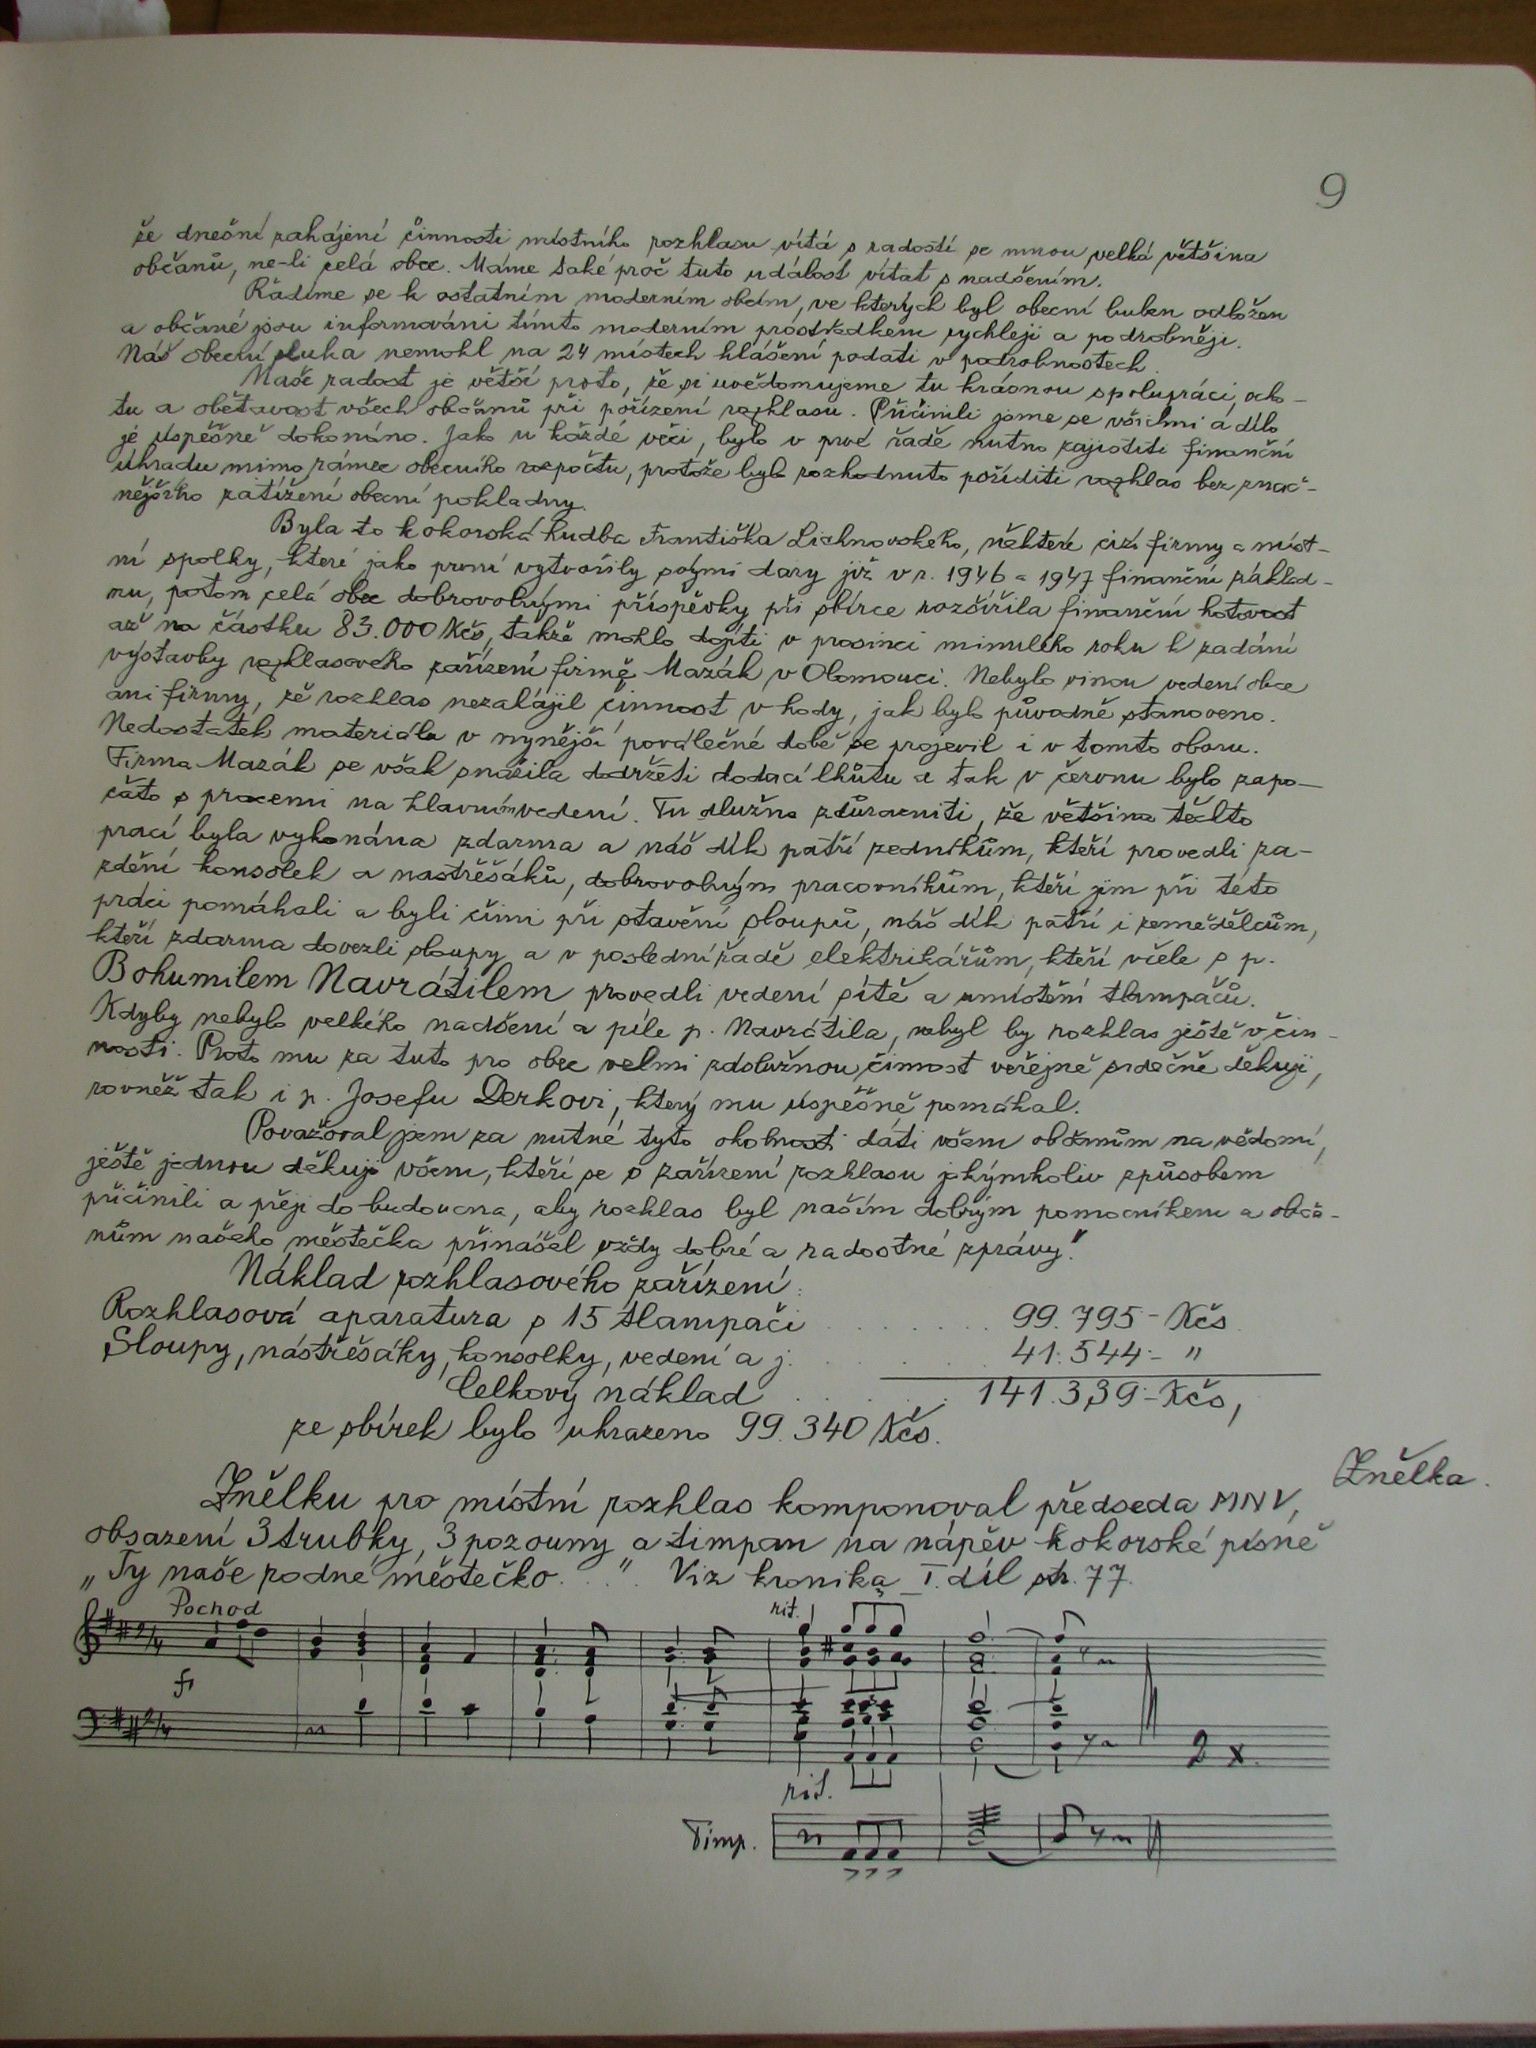 9
že dnešní zahájení činnosti místního rozhlasu vítá s radostí se mnou velká většina
občanů, ne-li celá obec. Máme také proč tuto událost vítat s nadšením.
Řadíme se k ostatním moderním obcím, ve kterých byl obecní buben odložen
a občané jsou informováni tímto moderním prostředkem rychleji a podrobněji.
Náš obecní sluha nemohl na 24 místech hlášení podati v podrobnostech.
Naše radost je větší proto, že si uvědomujeme tu krásnou spolupráci, ocho-
tu a obětavost všech občanů při pořízení rozhlasu. Přičinili jsme se všichni a dílo
je úspěšně dokonáno. Jako u každé věci, bylo v prvé řadě nutno zajistiti finanční
úhradu mimo rámec obecního rozpočtu, protože bylo rozhodnuto poříditi rozhlas bez znač-
nějšího zatížení obecní pokladny.
Byla to kokorská hudba Františka Lichnovského, některé cizí firmy a míst-
ní spolky, které jako první vytvořily svými dary již v r. 1946 a 1947 finanční základ-
nu, potom celá obec dobrovolnými příspěvky při sbírce rozšířila finanční hotovost
až na částku 83.000 Kčs, takže mohlo dojíti v prosinci minulého roku k zadání
výstavby rozhlasového zařízení firmě Mazák v Olomouci. Nebylo vinou vedení obce
ani firmy, že rozhlas nezahájil činnost v hody, jak bylo původně stanoveno.
Nedostatek materiálu v nynější poválečné době se projevil i v tomto oboru.
Firma Mazák se však snažila dodržeti dodací lhůtu a tak v červnu bylo zapo-
čato s pracemi na hlavním vedení. Tu dlužno zdůrazniti, že většina těchto
prací byla vykonána zdarma a náš dík patří zedníkům, kteří provedli za-
zdění konsolek a nastřešáků, dobrovolným pracovníkům, kteří jim při této
práci pomáhali a byli činni při stavění sloupů, náš dík patří i zemědělcům,
kteří zdarma dovezli sloupy a v poslední řadě elektrikářům, kteří včele s p.
Bohumilem Navrátilem provedli vedení sítě a umístění tlampačů.
Kdyby nebylo velkého nadšení a píle p. Navrátila, nebyl by rozhlas ještě v čin-
nosti. Proto mu za tuto pro obec velmi záslužnou činnost veřejně srdečně děkuji,
rovněž tak i p. Josefu Derkovi, který mu úspěšně pomáhal.
Považoval jsem za nutné tyto okolnosti dáti všem občanům na vědomí,
ještě jednou děkuji všem, kteří se o zařízení rozhlasu jakýmkoliv způsobem
přičinili a přeji do budoucna, aby rozhlas byl naším dobrým pomocníkem a obča-
nům našeho městečka přinášel vždy dobré a radostné zprávy."
Náklad rozhlasového zařízení:
Rozhlasová aparatura s 15 tlampači . . . . . . . . 99.795- Kčs
Sloupy, nástřešáky, konsolky, vedení a j. . . . . 41.544- "
Celkový náklad . . . . . . 141.339- Kčs,
ze sbírek bylo uhrazeno 99.340 Kčs.
Znělka.
Znělku pro místní rozhlas komponoval předseda MNV,
obsazení 3 trubky, 3 pozouny a timpan na nápěv kokorské písně
„Ty naše rodné městečko. . .". Viz kronika I. díl str. 77.
Pochod
rit.
f
2 x.
rit.
Timp.